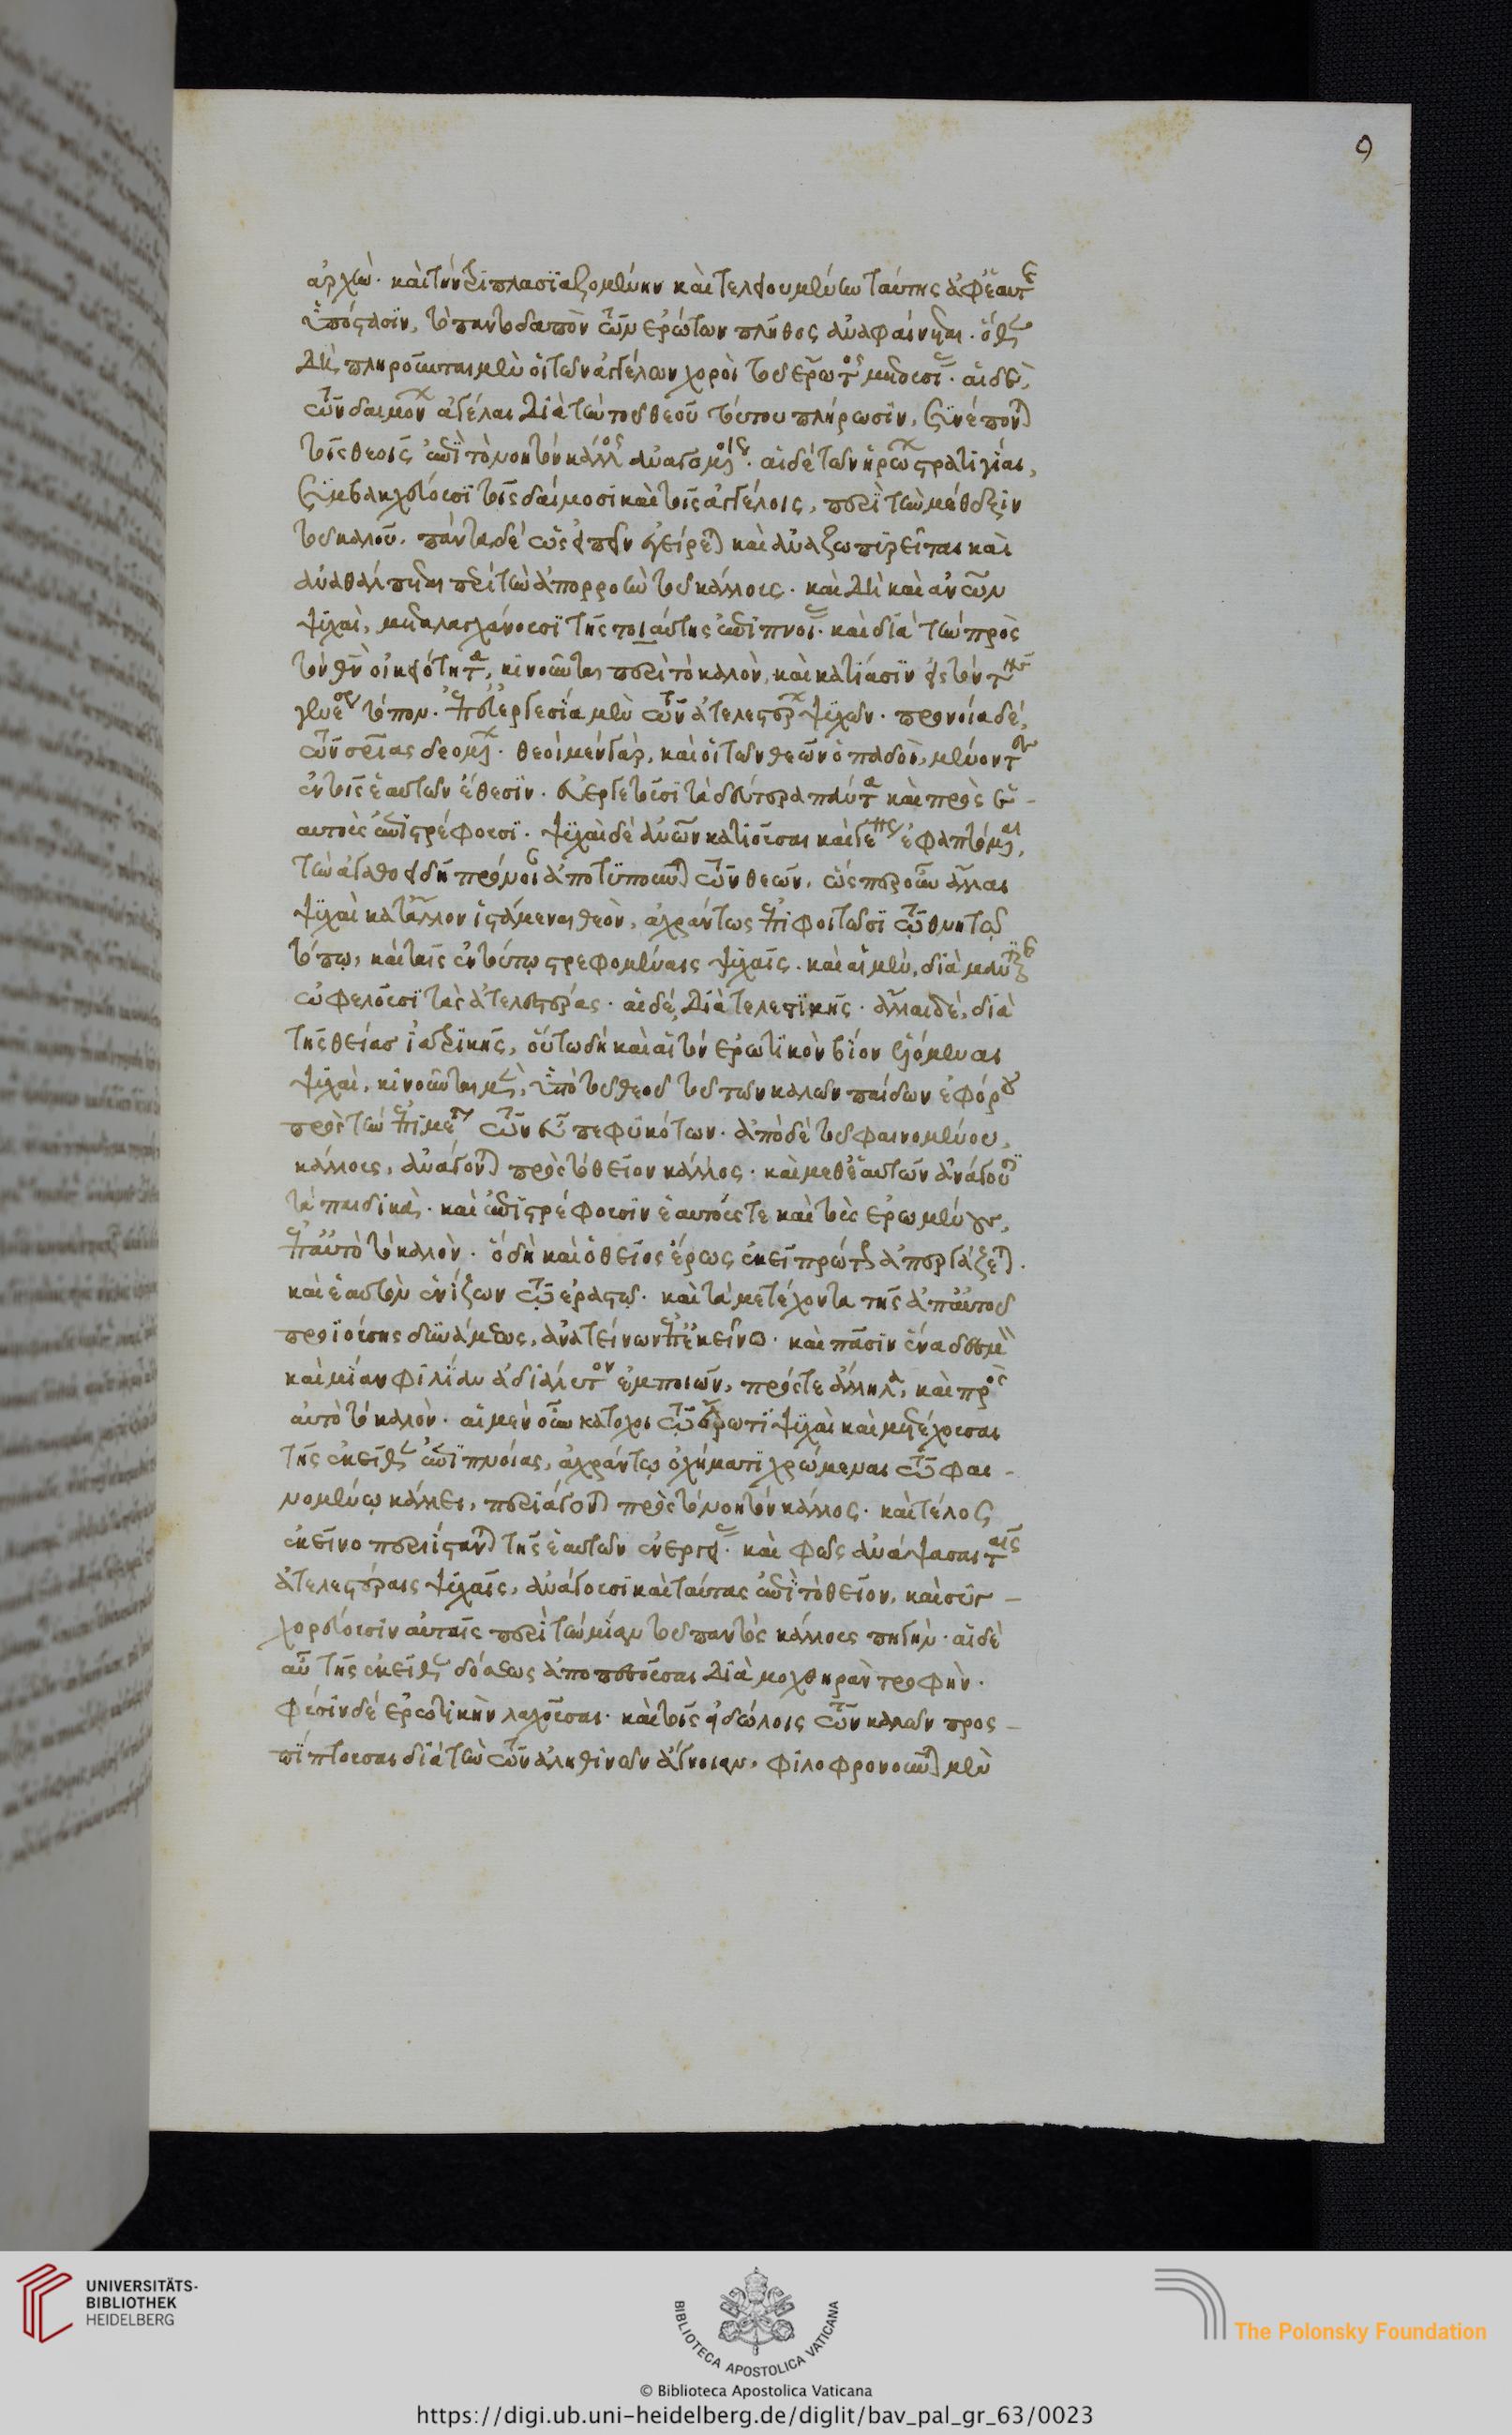 ἀρχὴν. καὶ τὴν διπλασιαζομένην καὶ τελειουμένην ταύτης ἀφ' ἑαυτ
ὑπόστασιν, τὸ παντοδαπὸν τῶν ἐρώτων πλῆθος ἀναφαίνεται. ὅθεν
δὴ πληροῦνται μὲν οἱ τῶν ἀγγέλων χοροὶ τοῦ ἔρωτος μετουσίας. αἱ δὲ,
τῶν δαιμόνων ἀγέλαι διὰ τὴν τοῦ θεοῦ τούτου πλήρωσιν, συνέπονται
τοῖς θεοῖς ἐπὶ τὸ νοητὸν κάλλος ἀναγομένοις. αἱ δὲ τῶν ἡρώων στρατιγίαι,
συμβακχεύουσι τοῖς δαίμοσι καὶ τοῖς ἀγγέλοις, περὶ τὴν μέθεξιν
τοῦ καλοῦ. πάντα δὲ ὡς εἰπεῖν ἐγείρεται καὶ ἀναζωπυρεῖται καὶ
ἀναθάλπεται περὶ τὴν ἀπορροὴν τοῦ κάλλους. καὶ δὴ καὶ ἀνῶν
ψυχαὶ, μεταλαγχάνουσι τῆς τοιαύτης ἐπιπνοίας. καὶ διὰ τὴν πρὸς
τὸν θν οἰκειότητα, κινοῦνται περὶ τὸ καλὸν, καὶ κατίασιν εἰς τὸν τῆς
γενέσεως τόπον. ἐπ' εὐεργεσία μὲν τῶν ἀτελεστέρων ψυχῶν. προνοία δὲ,
τῶν σρίας δεομένων. θεοὶ μὲν γὰρ, καὶ οἱ τῶν θεῶν ὀπαδοὶ, μένοντες
ἐν τοῖς ἑαυτῶν ἤθεσιν. εὐεργετοῦσι τὰ δεύτερα πάντα καὶ πρὸς ἑ-
αυτοὺς ἐπιστρέφουσι. ψυχαὶ δὲ ἀνῶν κατιοῦσαι καὶ γενέσεως ἐφαπτόμεναι,
τὴν ἀγαθοειδῆ πρόνοιαν ἀποτυποῦνται τῶν θεῶν. ὥσπερ οὖν ἄλλαι
ψυχαὶ κατ' ἄλλον ἱστάμεναι θεὸν, ἀχράντως ἐπιφοιτῶσι τῷ θνητῷ
τόπῳ, καὶ ταῖς ἐν τούτῳ στρεφομέναις ψυχαῖς. καὶ αἱ μὲν, διὰ μαντικῆς
ὠφελοῦσι τὰς ἀτελεστέρας. αἱ δὲ διὰ τελεστικῆς. ἄλλαι δὲ, διὰ
τῆς θείας ἰατρικῆς, οὕτω δὴ καὶ αἱ τὸν ἐρωτικὸν βίον ἑλόμεναι
ψυχαὶ, κινοῦνται μὲν, ὑπὸ τοῦ θεοῦ τοῦ τῶν καλῶν παίδων ἐφόρου
πρὸς τὴν ἐπιμέλειαν τῶν εὖ πεφυκότων. ἀπὸ δὲ τοῦ φαινομένου,
κάλλους, ἀνάγονται πρὸς τὸ θεῖον κάλλος. καὶ μεθ' ἑαυτῶν ἀνάγουσι
τὰ παιδικὰ. καὶ ἐπιστρέφουσιν ἑαυτούς τε καὶ τοὺς ἐρωμένους,
ἐπ' αὐτὸ τὸ καλὸν. ὃ δὴ καὶ ὁ θεῖος ἔρως ἐκεῖ πρώτως ἀπεργάζεται.
καὶ ἑαυτὸν ἑνίζων τῷ ἐραστῷ. καὶ τὰ μετέχοντα τῆς ἀπ' αὐτοῦ
προϊούσης δυνάμεως, ἀνατείνων ἐπ' ἐκεῖνο. καὶ πᾶσιν ἕνα δεσμὸν
καὶ μίαν φιλίαν ἀδιάλυτον ἐμποιῶν, πρός τε ἄλληλα, καὶ πρὸς
αὐτὸ τὸ καλὸν. αἱ μὲν οὖν κάτοχοι τῷ ἔρωτι ψυχαὶ καὶ μετέχουσαι
τῆς ἐκεῖθεν ἐπιπνοίας, ἀχράντῳ ὀχήματι χρώμεναι τῷ φαι-
νομένῳ κάλλει, περιάγονται πρὸς τὸ νοητὸν κάλλος. καὶ τέλος
ἐκεῖνο περιίστανται τῆς ἑαυτῶν ἐνεργείας. καὶ φῶς ἀνάψασαι ταῖς
ἀτελεστέραις ψυχαῖς, ἀνάγουσι καὶ ταύτας ἐπὶ τὸ θεῖον, καὶ συγ-
χορεύουσιν αὐταῖς περὶ τὴν μίαν τοῦ παντὸς κάλλους πηγὴν. αἱ δὲ
αὖ τῆς ἐκεῖθεν δόσεως ἀποπεσοῦσαι διὰ μοχθηρὰν τροφὴν.
φύσιν δὲ ἐρωτικὴν λαχοῦσαι. καὶ τοῖς εἰδώλοις τῶν καλῶν προσ-
πίπτουσαι διὰ τὴν τῶν ἀληθινῶν ἄγνοιαν, φιλοφρονοῦνται μὲν
9
UNIVERSITÄTS-
BIBLIOTHEK
HEIDELBERG
BIBLIOTECA APOSTOLICA VATICANA
The Polonsky Foundation
© Biblioteca Apostolica Vaticana
https://digi.ub.uni-heidelberg.de/diglit/bav_pal_gr_63/0023